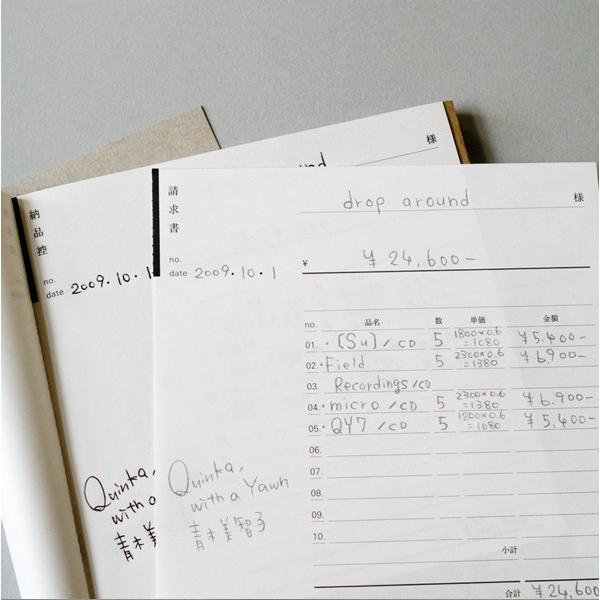 様
納品控
no.
date 2009.10.1
Quinka,
with a
青木美
請求書
drop around 様
no.
date 2009.10.1
¥ ¥24,600-
no. 品名 数 単価 金額
01. ・[Su]/CD 5 1800×0.6 =1080 ¥5,400-
02. ・Field 5 2300×0.6 =1380 ¥6,900-
03. Recordings/CD
04. ・micro/CD 5 2300×0.6 =1380 ¥6,900-
05. ・QY7/CD 5 1800×0.6 =1080 ¥5,400-
06.
07.
08.
09.
10.
Quinka,
with a Yawn
青木美智子
小計
合計 ¥24,600